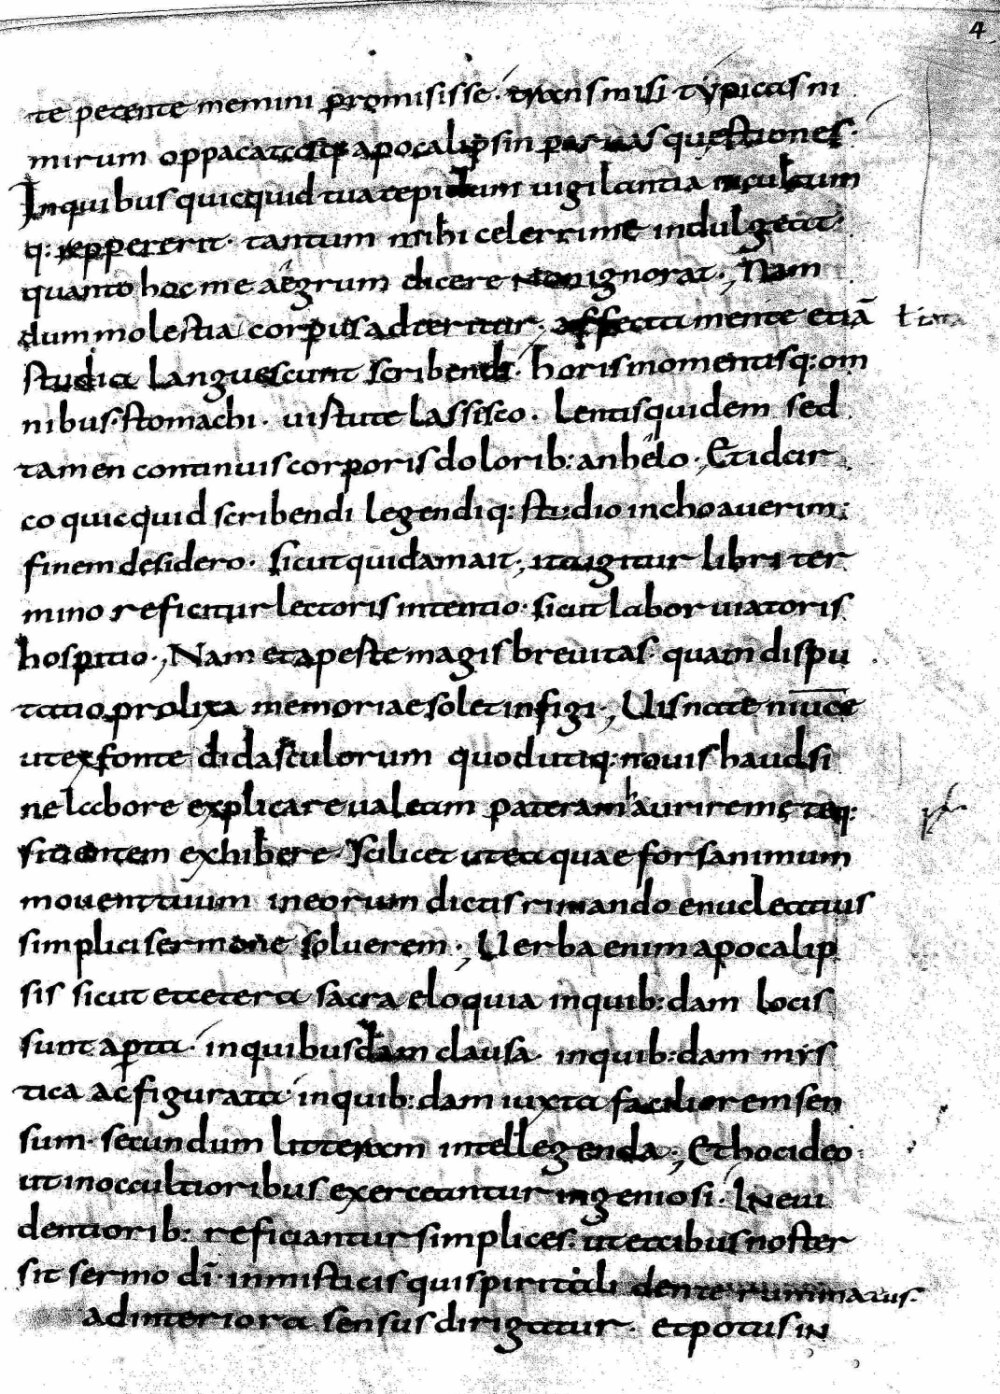 4
te petente memini promisisse· transmisi typicas ni
mirum oppacatasq; apocalipsin paruas questiones·
Inquibus quicquid tua tepidum uigilantia incultum
q: reppererit· tantum mihi celerrime indulgeat·
quanto hoc me aegrum dicere non ignorat·, Nam
dum molestia corpus adteritur· affecta mente etiā
studia languescunt scribendi· horis momentisq: om
nibus· stomachi· uistute lassisco· lentis quidem sed
tamen continuis corporis dolorib: anhelo·, Et idcir
co quicquid scribendi legendiq: studio inchoauerim;
finem desidero· sicut quidam ait·, ita igitur libri ter
mino reficitur lectoris intentio· sicut labor uiatoris
hospitio·, Nam et apeste magis breuitas· quam dispu
tatio prolixa memoriae solet infigi·, Uis nate
ut ex fonte didasculorum quod utiq: nouis haud si
ne labore explicare ualeam pateram haurirem teq:
sitientem exhibere· Scilicet ut ea quae fors animum
mouent tuum in eorum dictis rimando enucleatius
simplici sermone soluerem·, Uerba enim apocalip
sis sicut et cetera sacra eloquia in quib:dam locis
sunt aperta· in quibusdam clausa· in quib:dam mys
tica ac figurata· in quib:dam iuxta faciliorem sen
sum· secundum litteram intellegenda·, Et hoc ideo
ut in occultioribus exerceantur ingeniosi· IN eui
dentiorib: reficiantur simplices· ut et cibus noster
sit sermo dī· in misticis qui spiritali dente ruminatus·
ad interiora sensus dirigatur· et potus IN